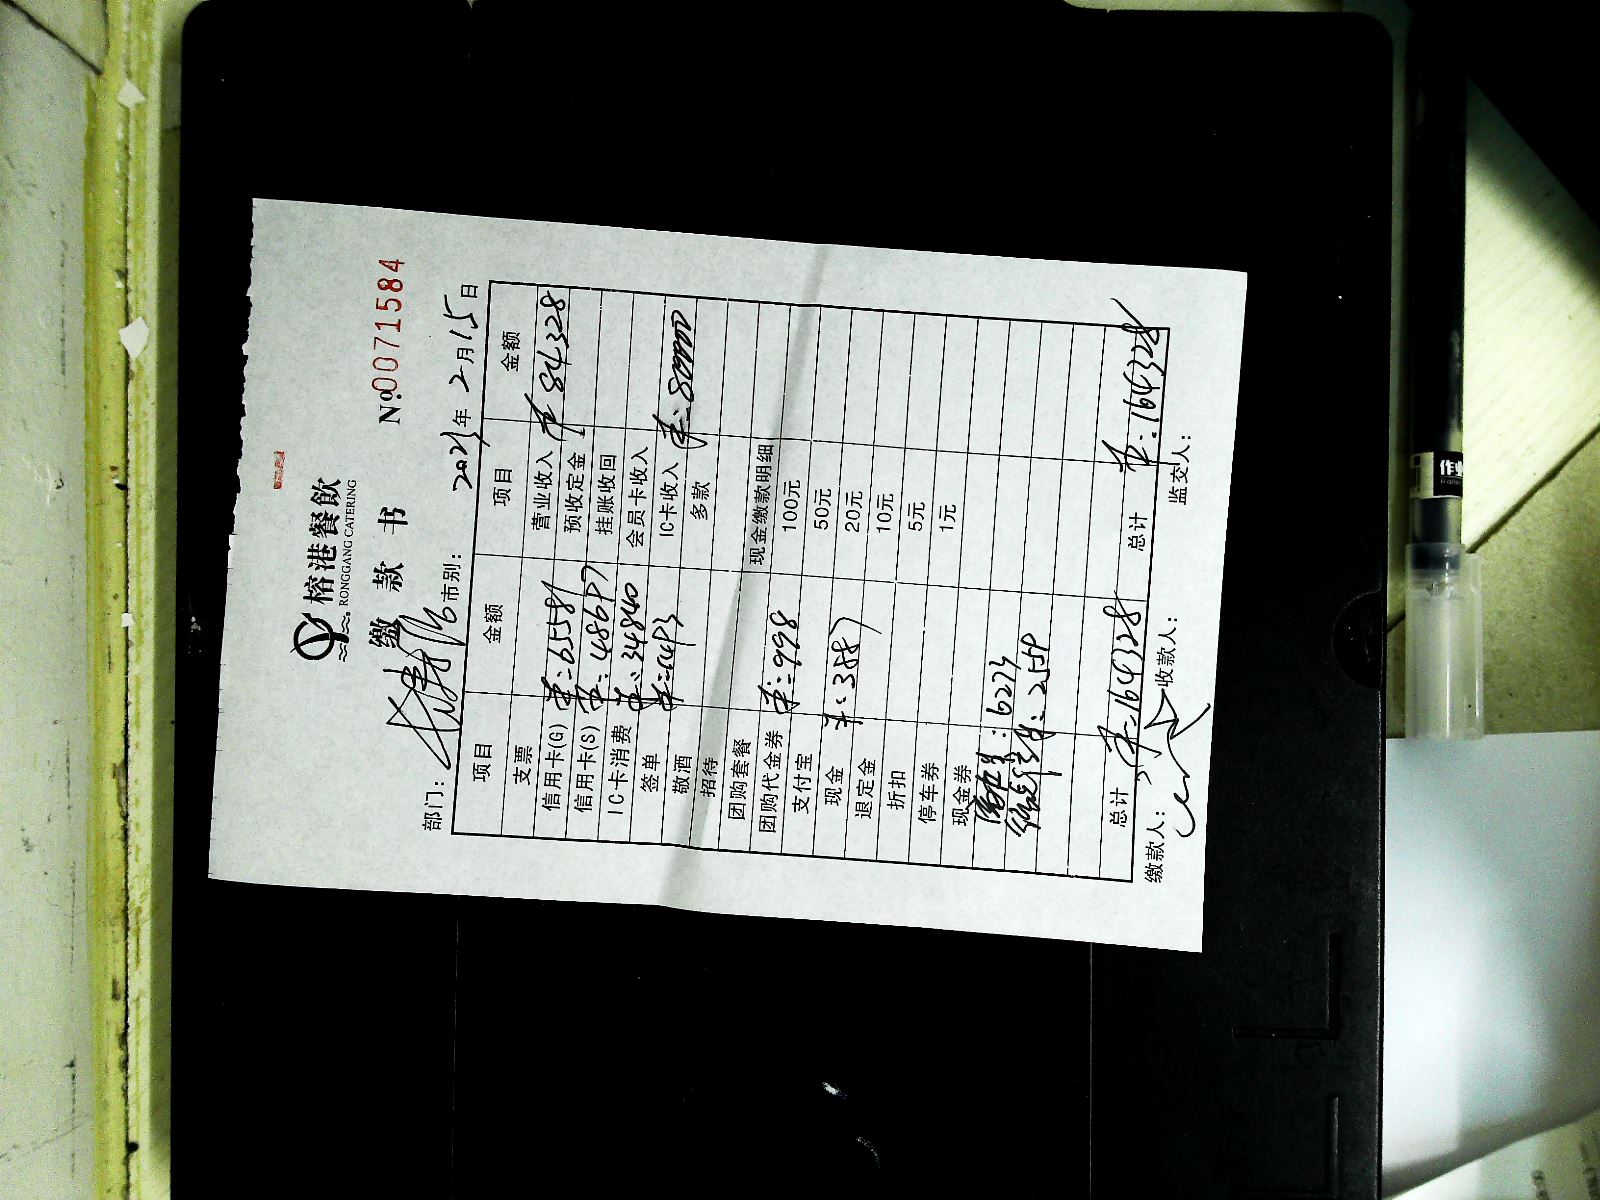 榕港餐飲
RONGGANG CATERING
缴 款 书 №0071584
部门： 市别： 2021年2月15日
项目 金额 项目 金额
支票 营业收入 84328
信用卡(G) 65581 预收定金
信用卡(S) 挂账收回
IC卡消费 34840 会员卡收入
签单 IC卡收入 80000
敬酒 多款
招待
团购套餐 现金缴款明细
团购代金券 998 100元
支付宝 50元
现金 3887 20元
退定金 10元
折扣 5元
停车券 1元
现金券
6273
总计 164328 总计 164328
缴款人： 收款人： 监交人：